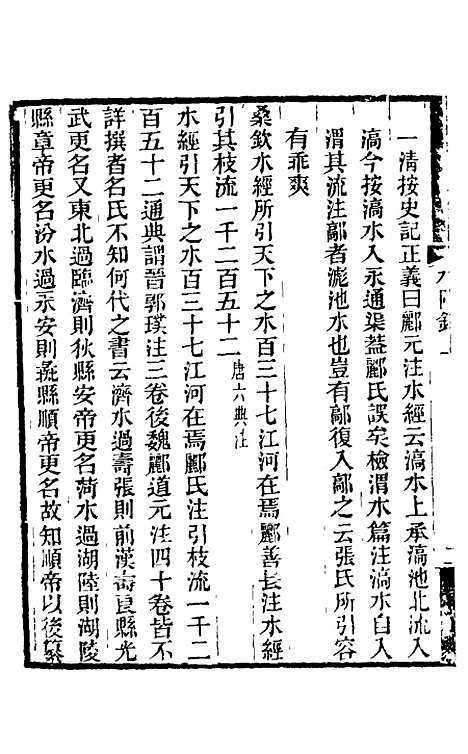 一清按史記正義曰酈元注水經云滈水上承滈池北流入
滈今按滈水入永通渠葢酈氏誤矣檢渭水篇注滈水自入
渭其流注鄗者滮池水也豈有鄗復入鄗之云張氏所引容
有乖爽
桑欽水經所引天下之水百三十七江河在焉酈善長注水經
引其枝流一千二百五十二唐六典注
水經引天下之水百三十七江河在焉酈氏注引枝流一千二
百五十二通典謂晉郭璞注三卷後魏酈道元注四十卷皆不
詳撰者名氏不知何代之書云濟水過壽張則前漢壽良縣光
武更名又東北過臨濟則狄縣安帝更名菏水過湖陸則湖陵
縣章帝更名汾水過永安則彘縣順帝更名故知順帝以後纂